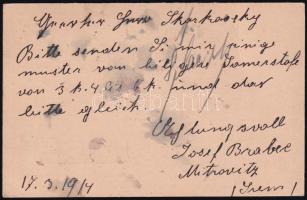 Geerter Herr Skarkowsky
Bitte senden Si mir einige
muster von biligst Somerstofe
von 3 k. 4 bis 6 k und das
bitte gleich.
Achtungsvoll
Josef Brabec
Mitrovitz
17.3.1914 (Srem)